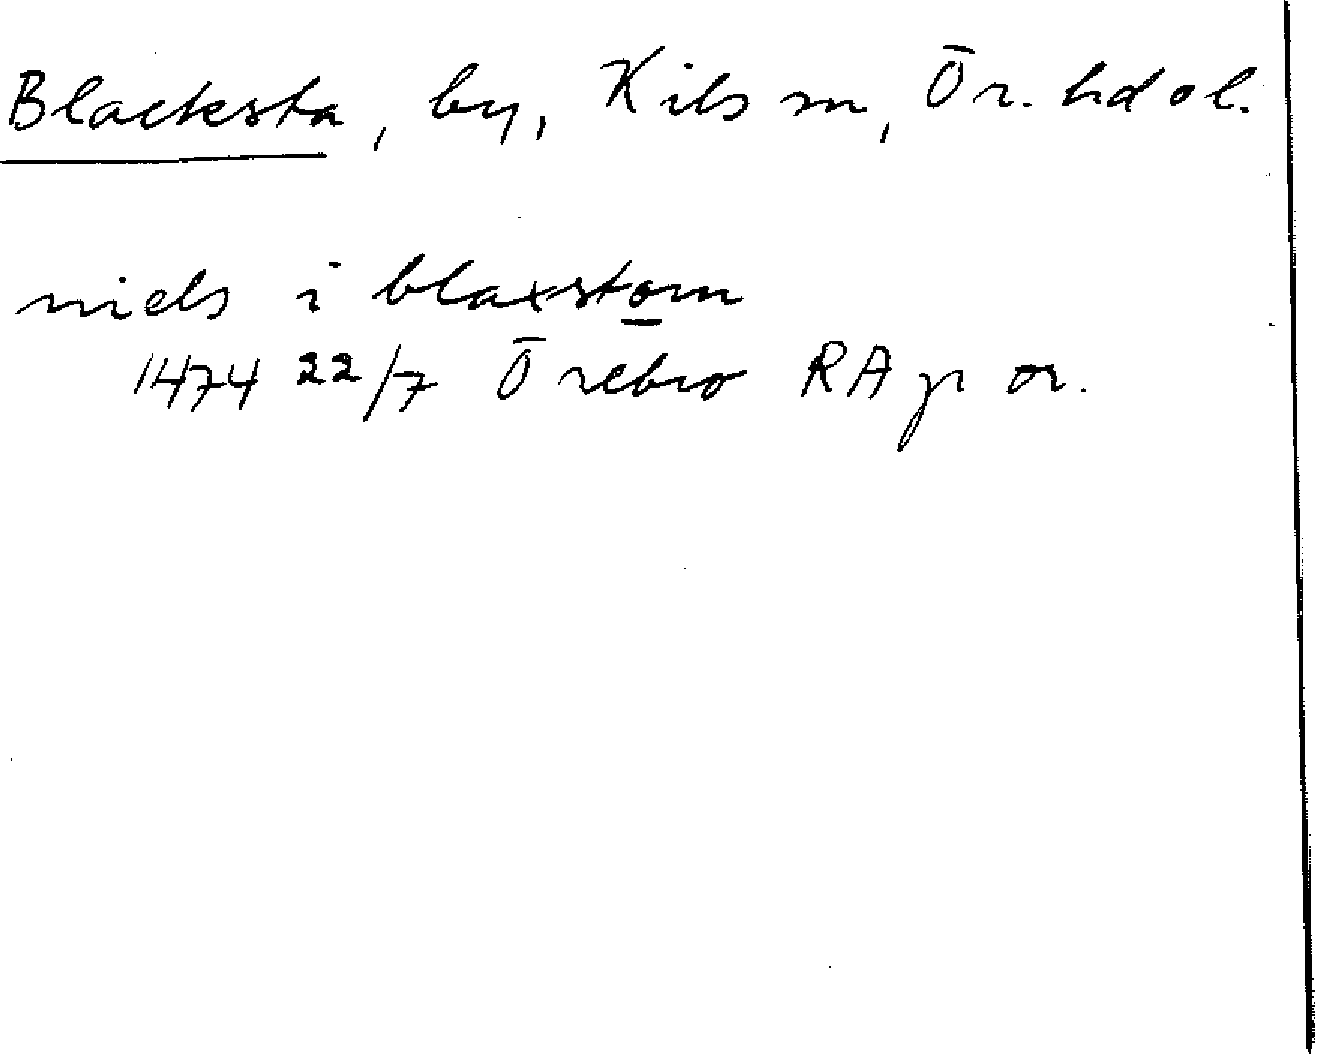 Blacksta, by, Kils sn, Ör. hd o l.
niels i blaxstom
1474 22/7 Örebro RA p or.